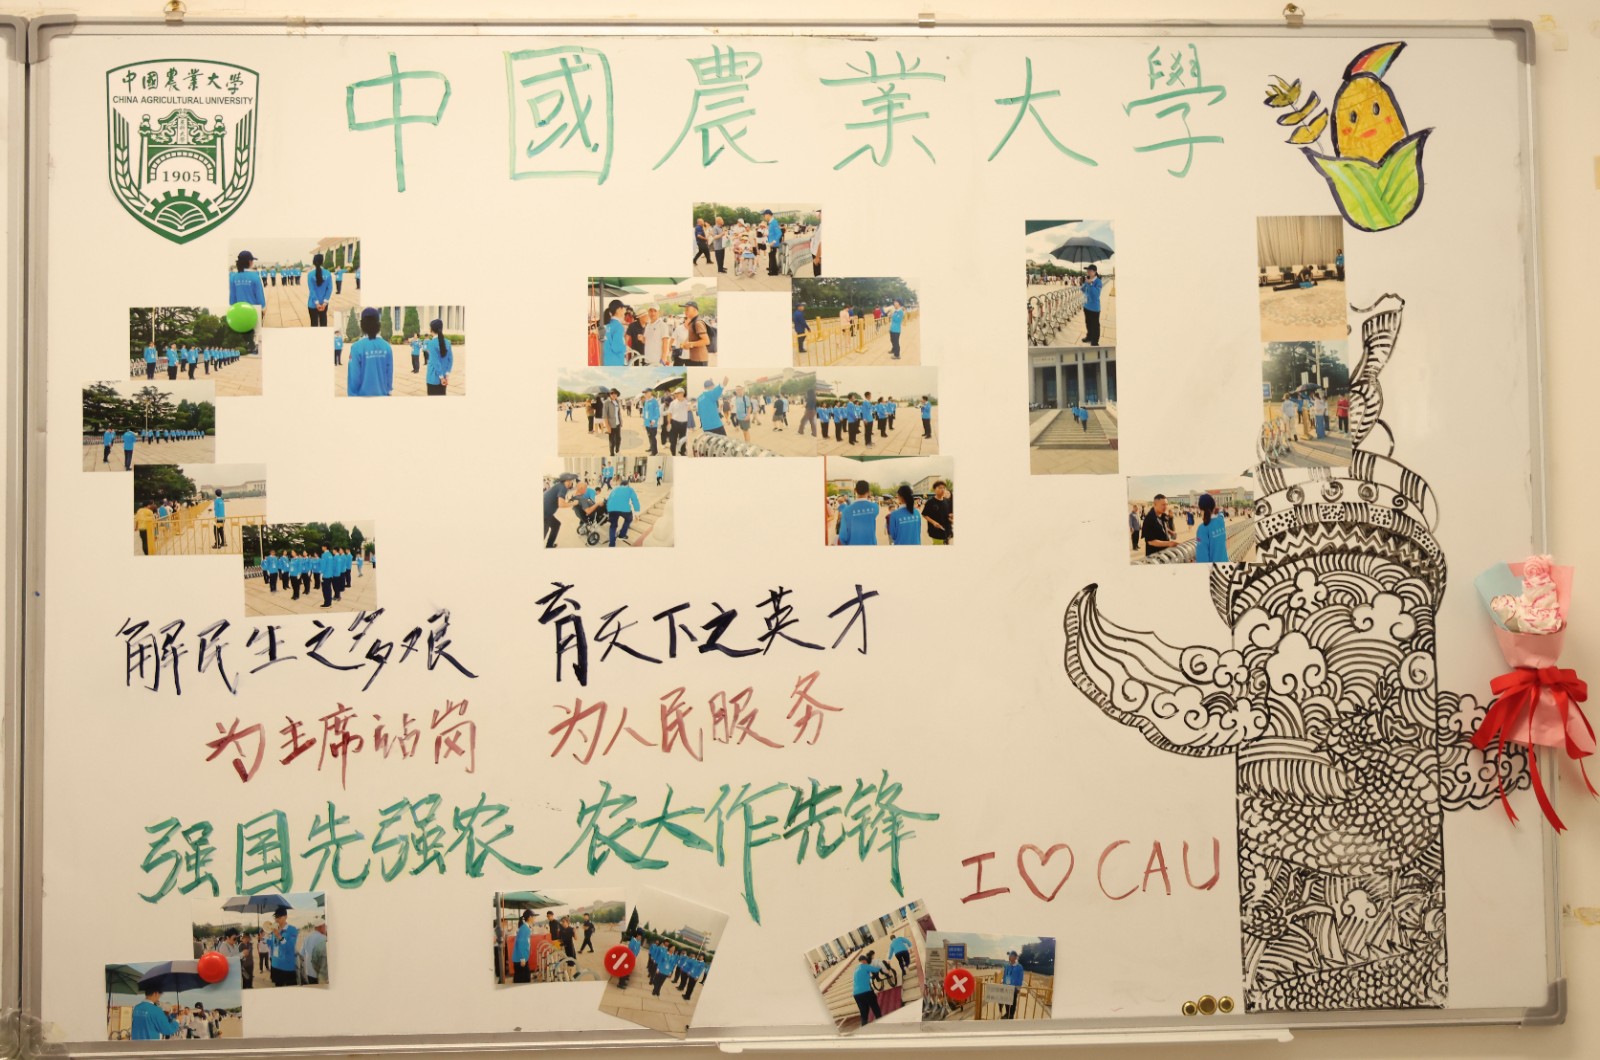 中國農業大學
中國農業大學
CHINA AGRICULTURAL UNIVERSITY
1905
解民生之多艰 育天下之英才
为主席站岗 为人民服务
强国先强农 农大作先锋
I ♡ CAU